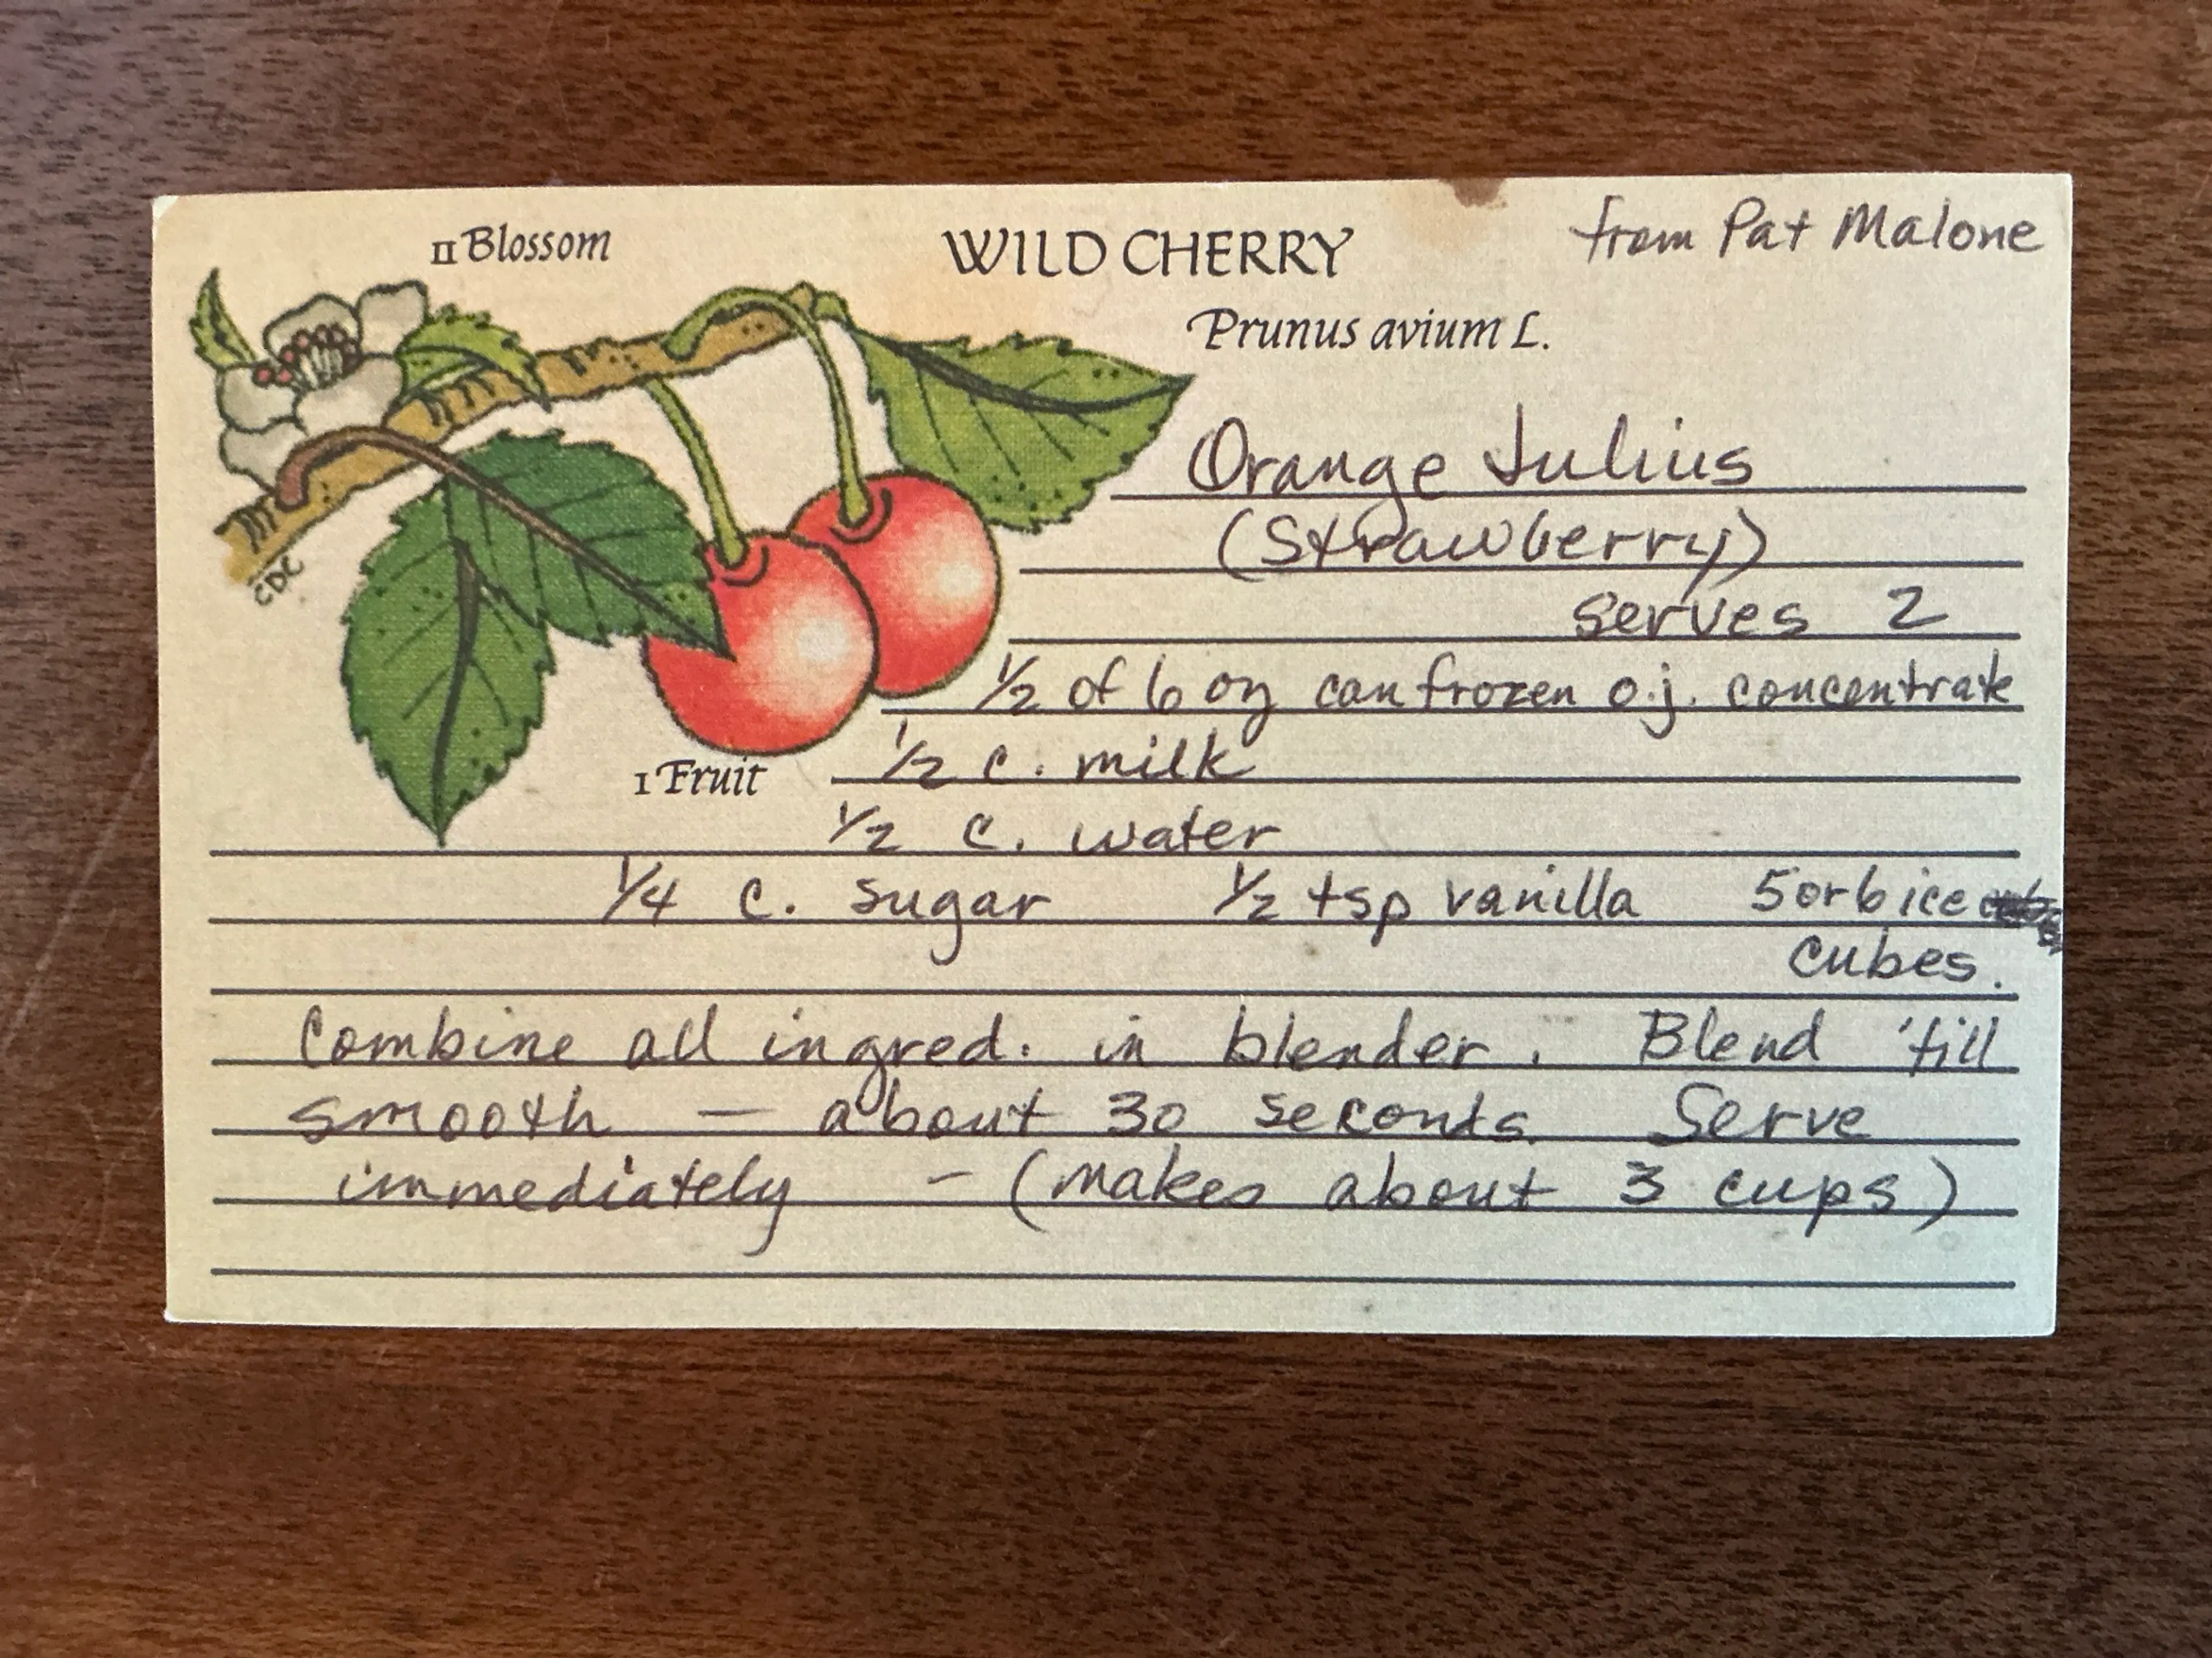 II Blossom
WILD CHERRY
from Pat Malone
Prunus avium L.
Orange Julius
(Strawberry)
serves 2
CDC
1/2 of 6 oz can frozen o.j. concentrate
1/2 c. milk
I Fruit
1/2 c. water
1/4 c. sugar 1/2 tsp vanilla 5 or 6 ice
cubes.
Combine all ingred. in blender. Blend 'till
smooth — about 30 seconds. Serve
immediately - (makes about 3 cups)